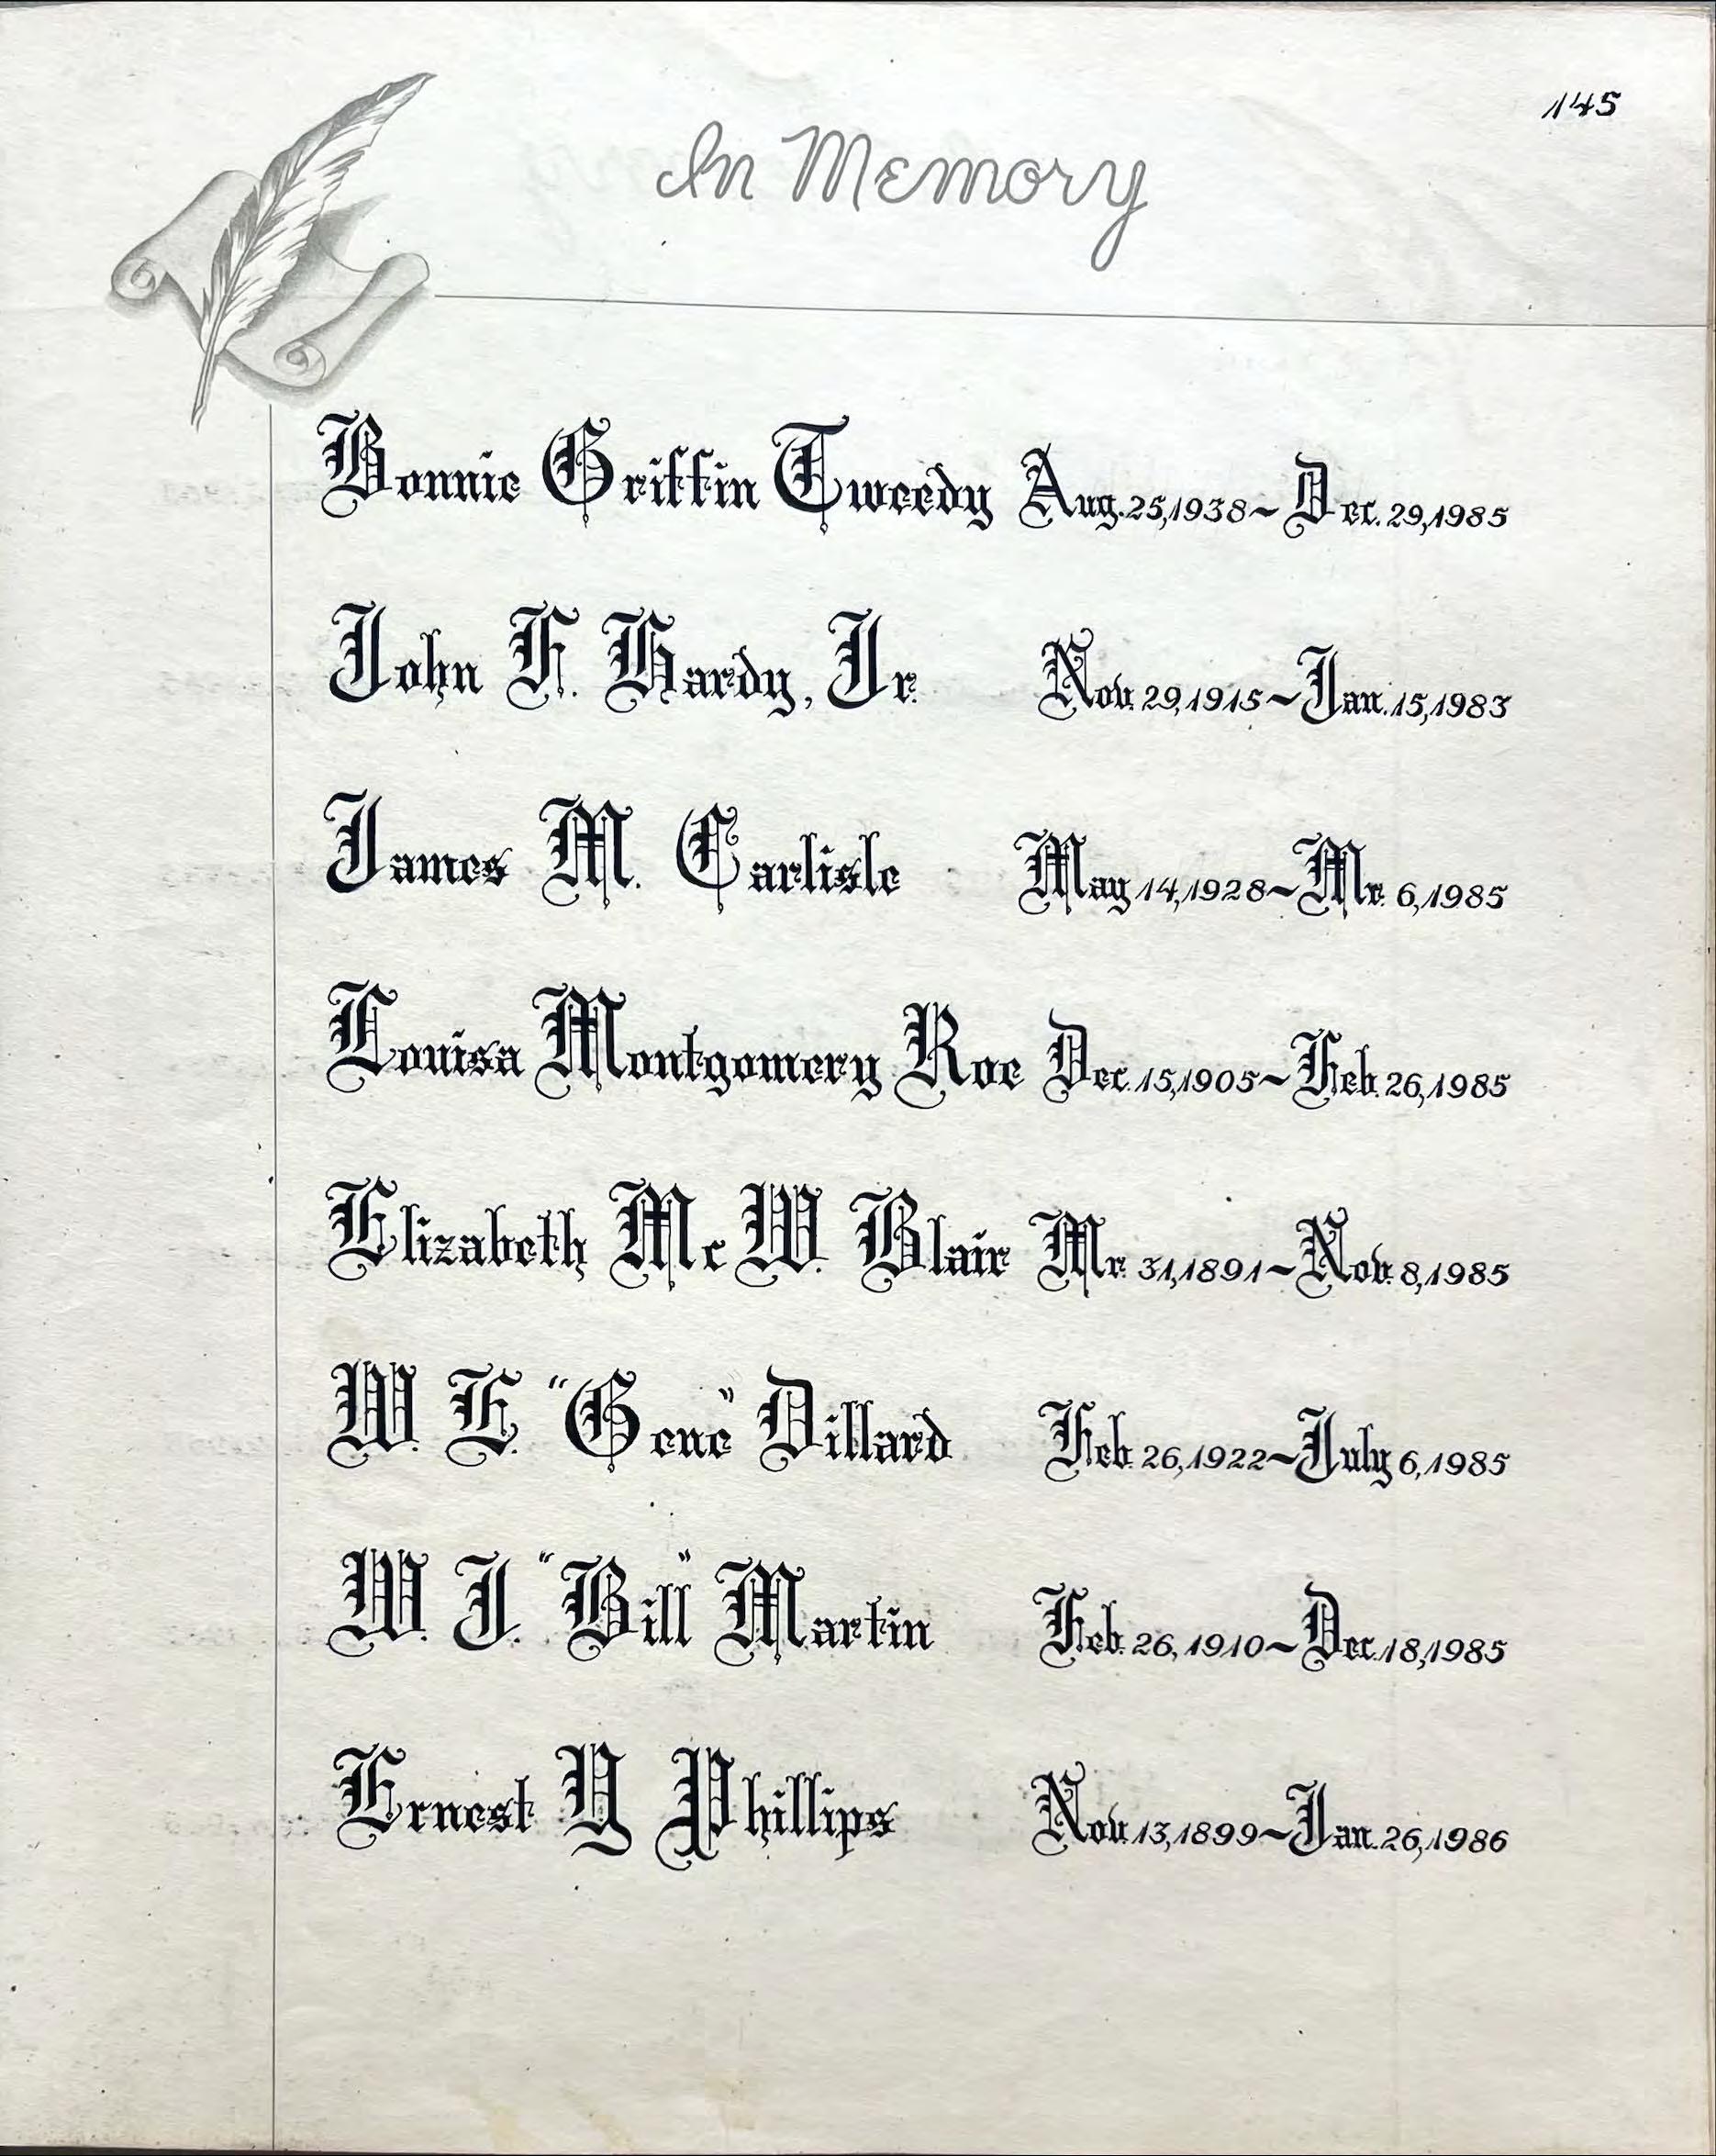 145
In Memory
Bonnie Griffin Tweedy Aug. 25, 1938 ~ Dec. 29, 1985
John F. Hardy, Jr. Nov. 29, 1915 ~ Jan. 15, 1983
James M. Carlisle May 14, 1928 ~ Mr. 6, 1985
Louisa Montgomery Roe Dec. 15, 1905 ~ Feb. 26, 1985
Elizabeth Mc W. Blair Mr. 31, 1891 ~ Nov. 8, 1985
W. E. "Gene" Dillard Feb. 26, 1922 ~ July 6, 1985
W. J. "Bill" Martin Feb. 26, 1910 ~ Dec. 18, 1985
Ernest Y Phillips Nov. 13, 1899 ~ Jan. 26, 1986